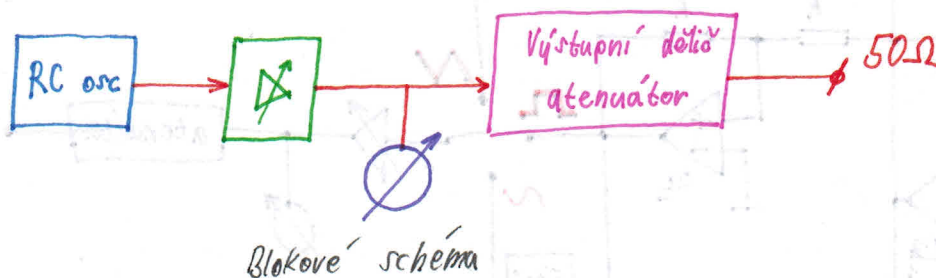 RC osc
Výstupní dělič
atenuátor
50Ω
Blokové schéma